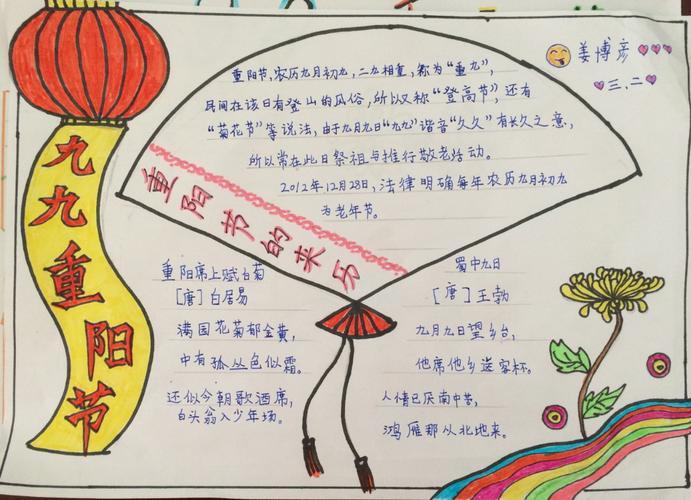 九九重阳节
姜博彦
三.二
重阳节,农历九月初九,二九相重,称为“重九”,
民间在该日有登山的风俗,所以又称“登高节”,还有
“菊花节”等说法,由于九月九日“九九”谐音“久久”有长久之意,
所以常在此日祭祖与推行敬老活动。
2012年12月28日,法律明确每年农历九月初九
为老年节。
重阳节的来历
重阳席上赋白菊
[唐]白居易
满园花菊郁金黄,
中有孤丛色似霜。
还似今朝歌酒席,
白头翁入少年场。
蜀中九日
[唐]王勃
九月九日望乡台,
他席他乡送客杯。
人情已厌南中苦,
鸿雁那从北地来。